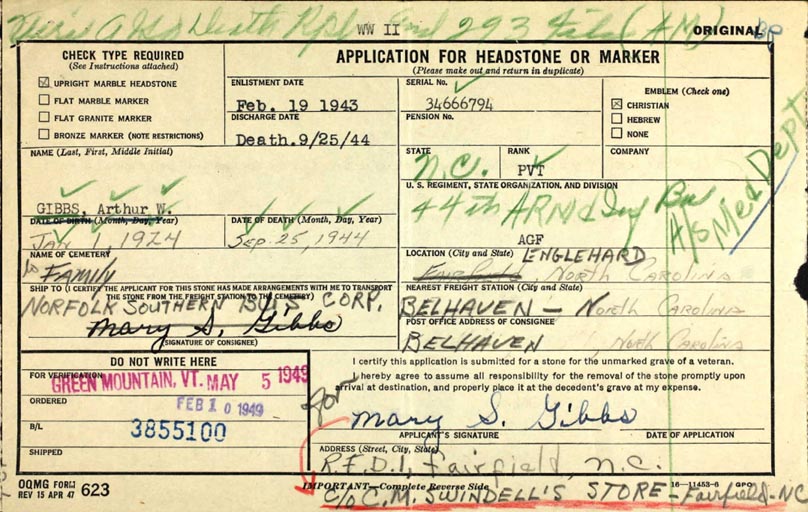 WW II
293 File (A.M.)
ORIGINAL BP
CHECK TYPE REQUIRED
(See Instructions attached)
☒ UPRIGHT MARBLE HEADSTONE
☐ FLAT MARBLE MARKER
☐ FLAT GRANITE MARKER
☐ BRONZE MARKER (NOTE RESTRICTIONS)
APPLICATION FOR HEADSTONE OR MARKER
(Please make out and return in duplicate)
ENLISTMENT DATE
Feb. 19 1943
DISCHARGE DATE
Death.9/25/44
SERIAL No.
34666794
PENSION No.
EMBLEM (Check one)
☒ CHRISTIAN
☐ HEBREW
☐ NONE
NAME (Last, First, Middle Initial)
GIBBS, Arthur W.
STATE
N.C.
RANK
PVT
COMPANY
U. S. REGIMENT, STATE ORGANIZATION, AND DIVISION
44th ARMd Inf Bn
A/S Med Dept
AGF
DATE OF BIRTH (Month, Day, Year)
JAN 1, 1924
DATE OF DEATH (Month, Day, Year)
SEP. 25, 1944
NAME OF CEMETERY
FAMILY
LOCATION (City and State)
ENGLEHARD
Fairfield, NORTH CAROLINA
SHIP TO (I CERTIFY THE APPLICANT FOR THIS STONE HAS MADE ARRANGEMENTS WITH ME TO TRANSPORT
THE STONE FROM THE FREIGHT STATION TO THE CEMETERY)
NORFOLK SOUTHERN BUS CORP.
Mary S. Gibbs
(SIGNATURE OF CONSIGNEE)
NEAREST FREIGHT STATION (City and State)
BELHAVEN - North Carolina
POST OFFICE ADDRESS OF CONSIGNEE
BELHAVEN, North Carolina
DO NOT WRITE HERE
FOR VERIFICATION
GREEN MOUNTAIN, VT. MAY 5 1949
ORDERED
FEB 10 1949
B/L
3855100
SHIPPED
I certify this application is submitted for a stone for the unmarked grave of a veteran.
I hereby agree to assume all responsibility for the removal of the stone promptly upon
arrival at destination, and properly place it at the decedent's grave at my expense.
for
Mary S. Gibbs
APPLICANT'S SIGNATURE
DATE OF APPLICATION
ADDRESS (Street, City, State)
R.F.D. 1, Fairfield, N.C.
OQMG FORM
REV 15 APR 47 623
IMPORTANT—Complete Reverse Side
16—11453-6 GPO
C/O C.M. SWINDELL'S STORE - Fairfield - NC